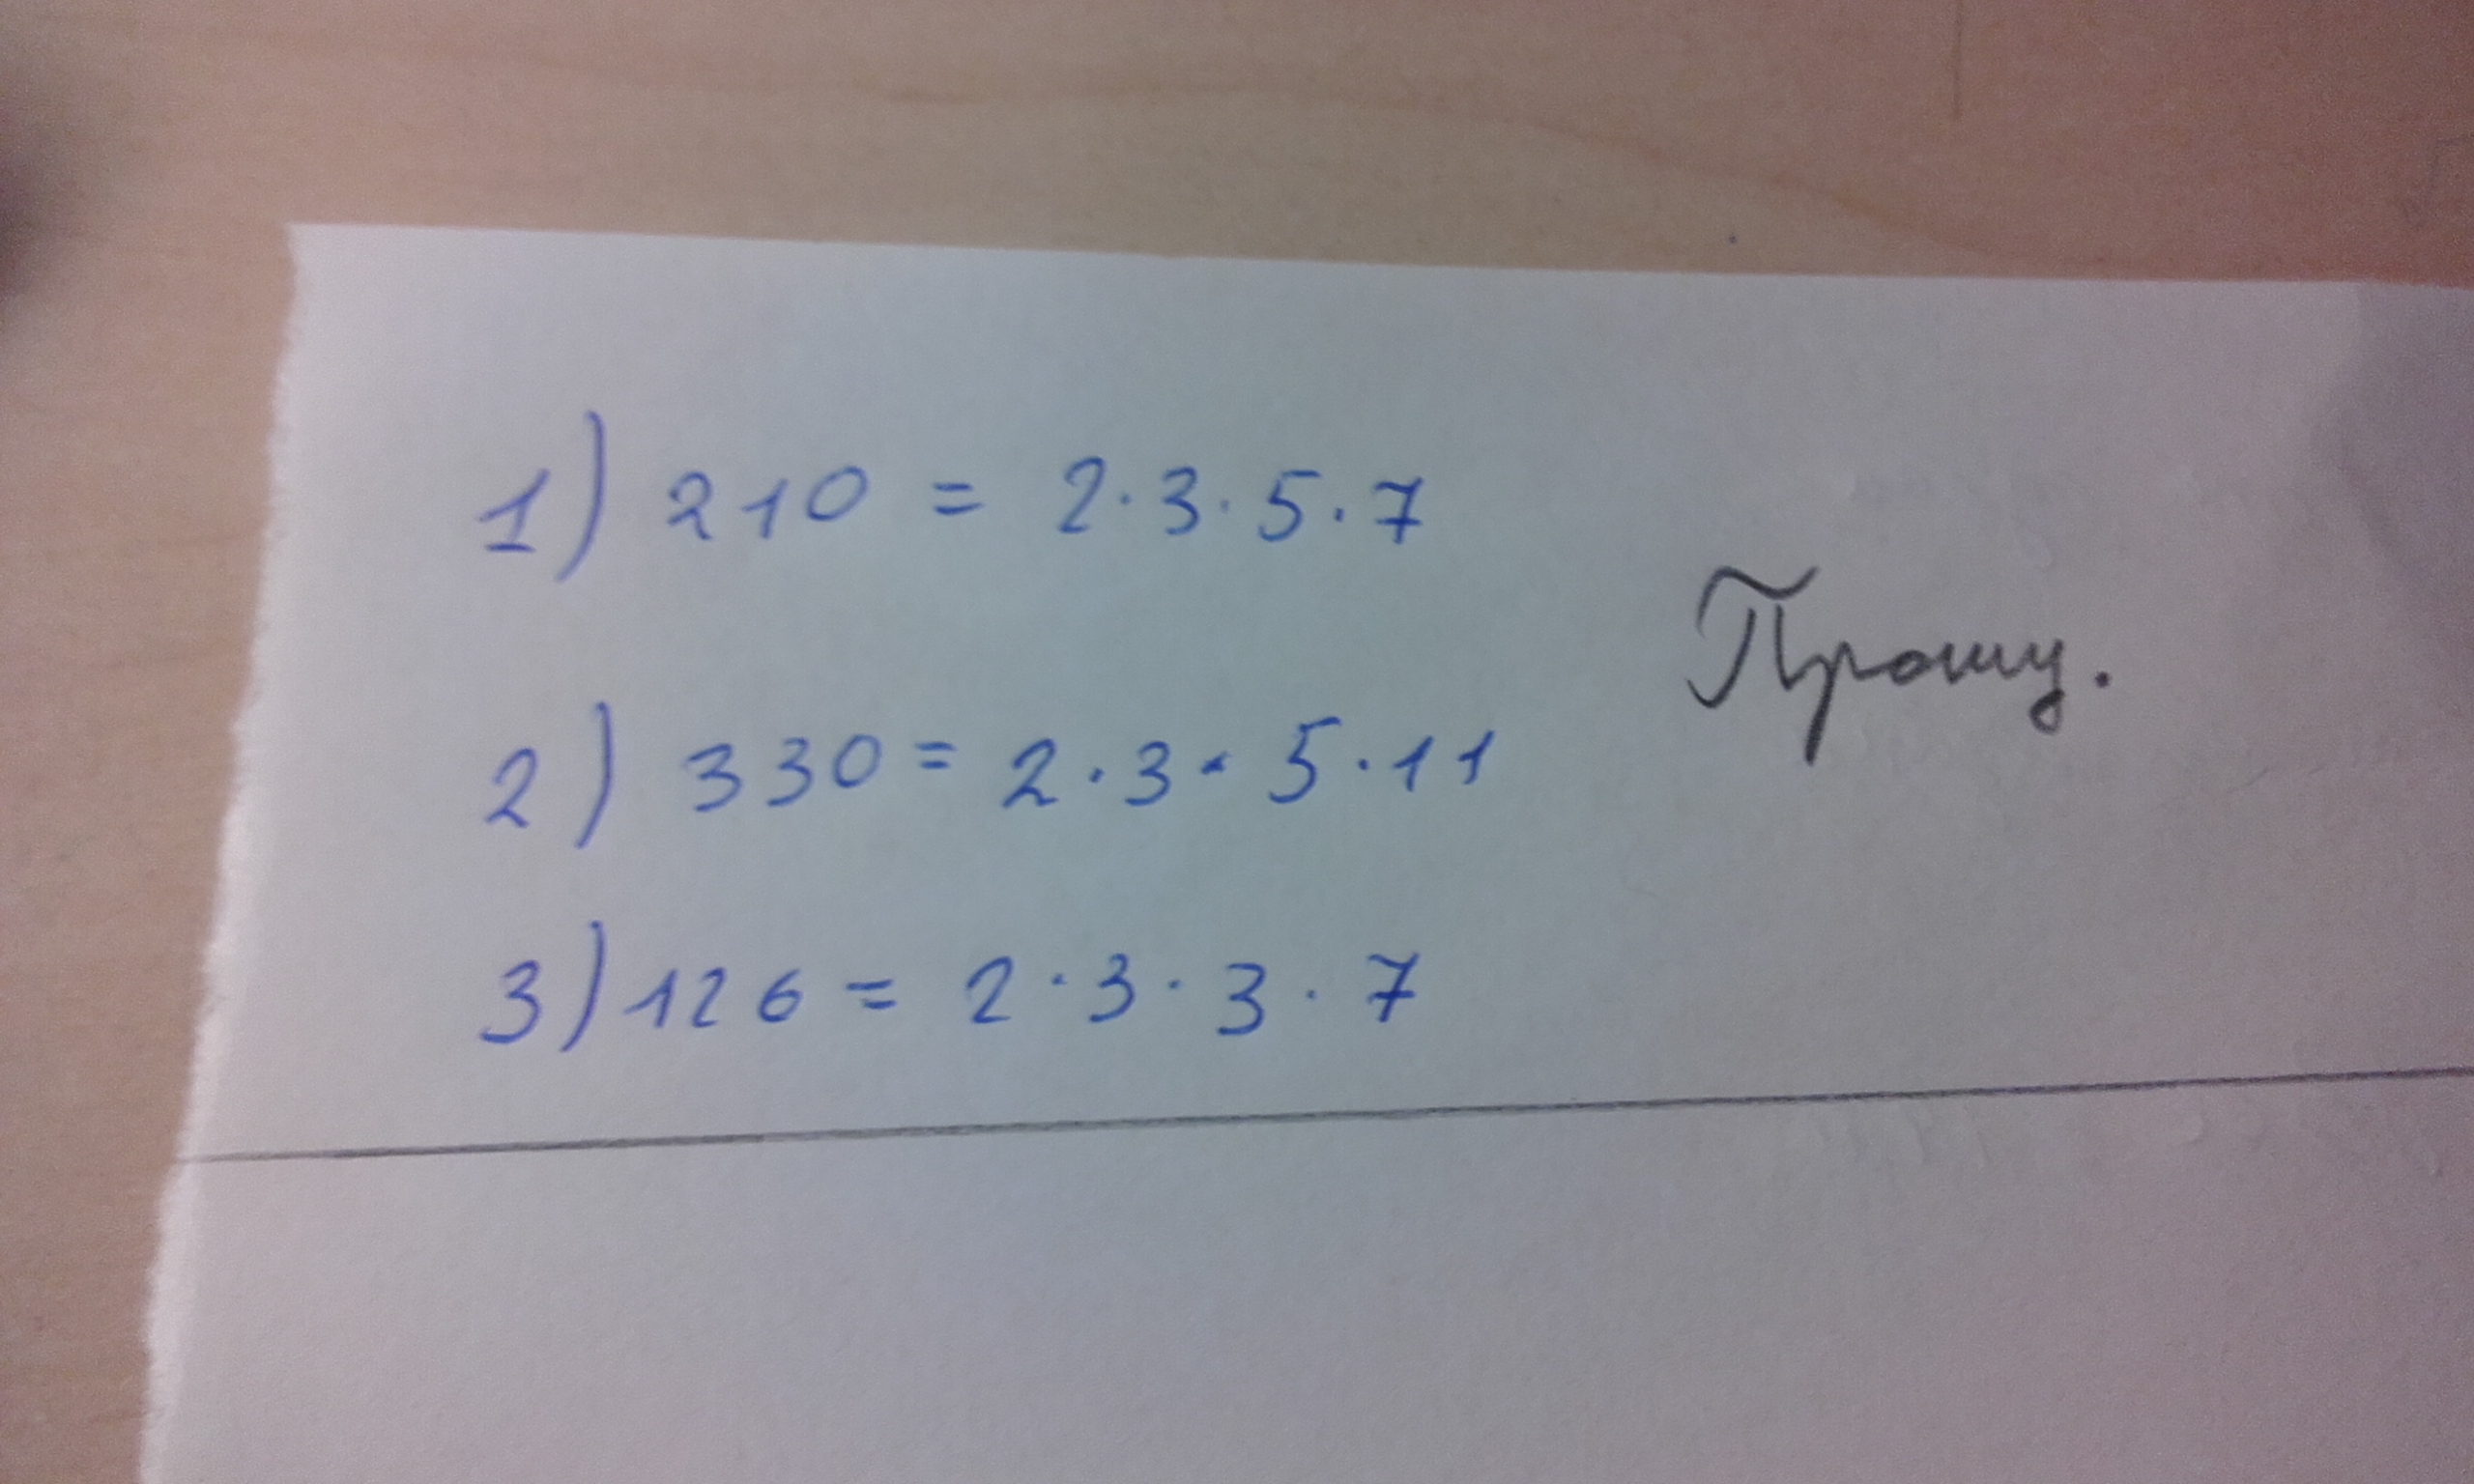 1) 210 = 2·3·5·7
Прошу.
2) 330 = 2·3·5·11
3) 126 = 2·3·3·7